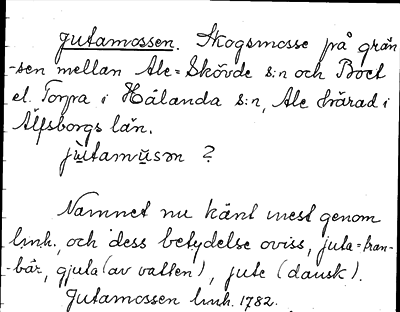 Jutamossen. Skogsmosse på grän-
-sen mellan Ale=Skövde s:n och Boet
el. Torpa i Hålanda s:n, Ale härad i
Älfsborgs län.
jùtamùsɘn ?
Namnet nu känt mest genom
link., och dess betydelse oviss, juta=tran-
-bär, gjuta (av vatten), jute (dansk).
Jutamossen link. 1782.